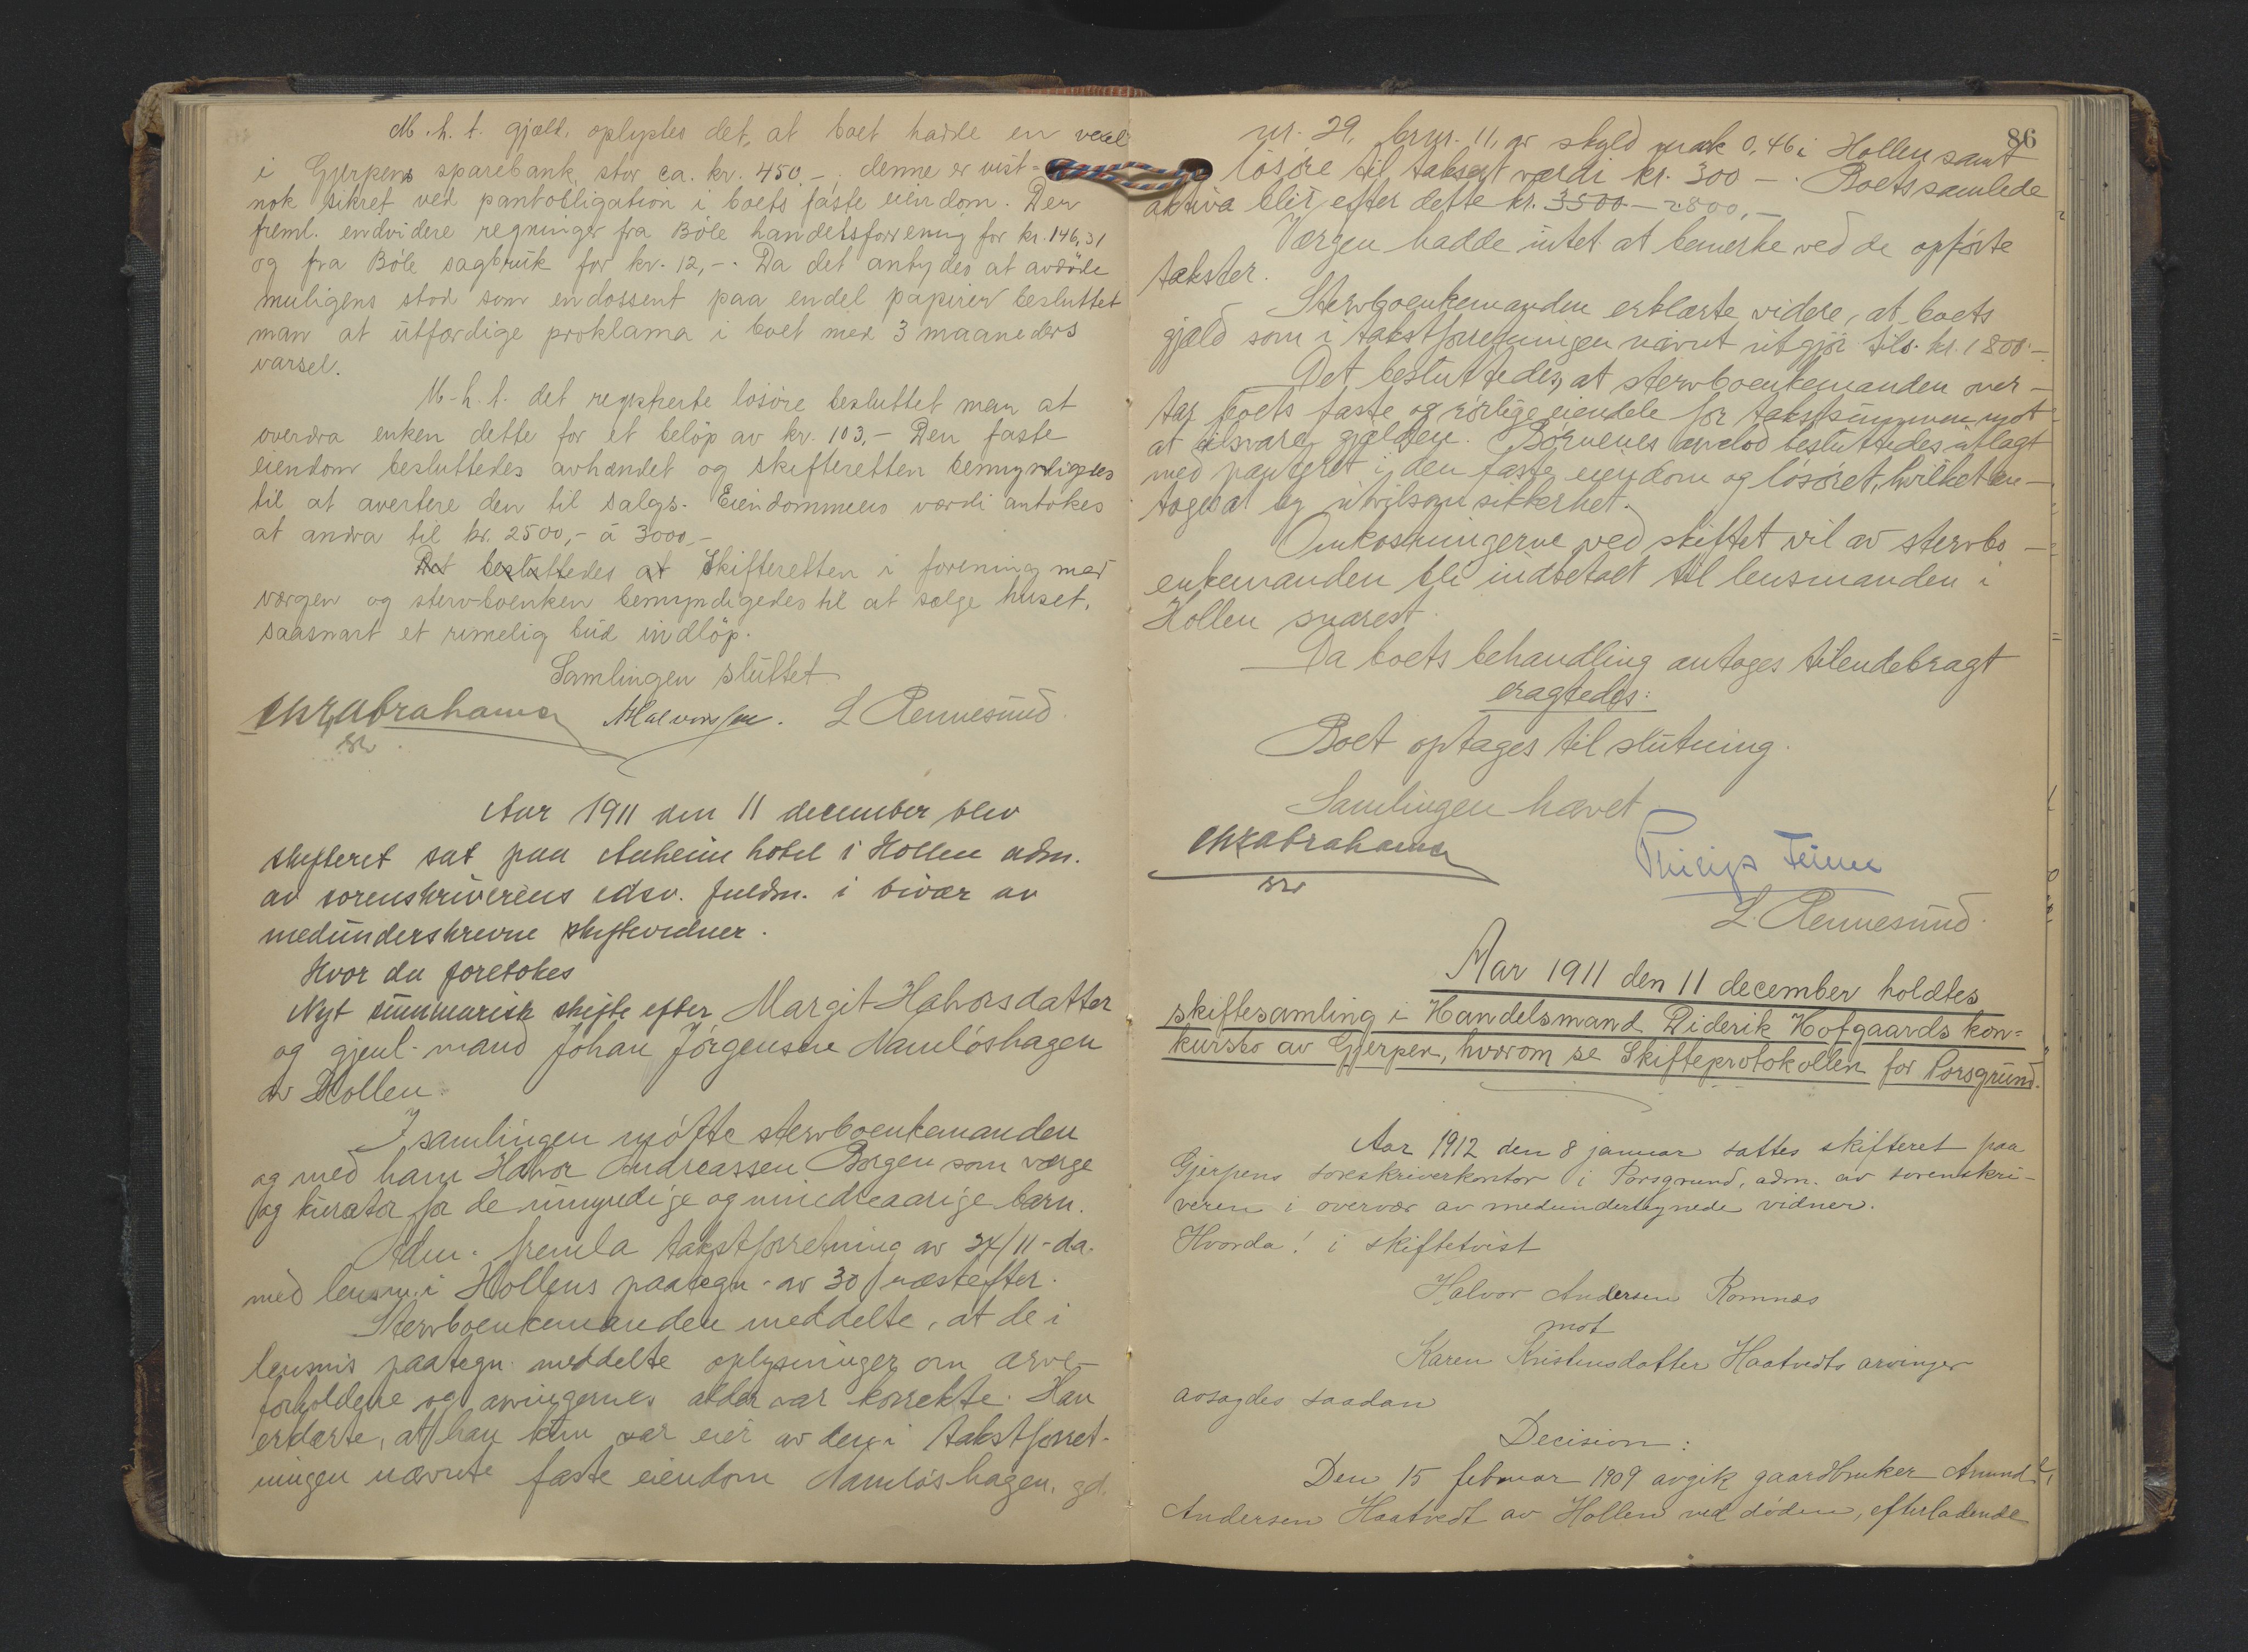 M.h.t. gjæld, oplystes det, at boet hadde en vexel
i Gjerpens sparebank, stor ca. kr. 450.-, denne er vist-
nok sikret ved pantobligation i boets faste eiendom. Der
freml. endvidere regninger fra Böle handelsforrening for kr. 146,31
og fra Böle sagbruk for kr. 12,-. Da det antydes at avdöde
muligens stod som endossent paa endel papirer besluttet
man at utfærdige proklama i boet med 3 maaneders
varsel.
M-h.t. det registrerte lösöre besluttet man at
overdra enken dette for et belöp av kr. 103,- Den faste
eiendom besluttedes avhændet og skifteretten bemyndigedes
til at avertere den til salgs. Eiendommens værdi antokes
at andra til kr. 2500,- à 3000,-
Det besluttedes at Skifteretten i forening med
værgen og stervboenken bemyndigedes til at sælge huset,
saasnart et rimelig bud indlöp.
Samlingen sluttet
Chr Abrahams Halvorsen. L Rennesund.
Aar 1911 den 11 december blev
skifteret sat paa Anheim hotel i Hollen adm.
av sorenskriverens edsv. fuldm. i bivær av
medunderskrevne skiftevidner.
Hvor da foretokes
Nyt summarisk skifte efter Margit Halvorsdatter
og gjenl. mand Johan Jörgensen Namlöshagen
av Hollen.
I samlingen mötte stervboenkemanden
og med ham Halvor Andreassen Borgen som værge
og kurator for de umyndige og mindreaarige barn.
Adm. fremla takstforretning av 24/11 d.a.
med lensm. i Hollens paategn. av 30 næstefter.
Stervboenkemanden meddelte, at de i
lensm's paategn. meddelte oplysninger om arve-
forholdene og arvingernes alder var korrekte. Han
erklærte, at han kun var eier av den i takstforret-
ningen nævnte faste eiendom Namlöshagen, gd.
86
nr. 29, brnr. 11, av skyld mark 0,46 i Hollen samt
lösöre til taksert værdi kr. 300 -. Boets samlede
aktiva blir efter dette kr. 3500 - 2800,-
Værgen hadde intet at bemerke ved de opförte
takster.
Stervboenkemanden erklærte videre, at boets
gjæld som i takstforretningen nævnt utgjör tils. kr. 1800.-
Det besluttedes, at stervboenkemanden over-
tar boets faste og rörlige eiendele for takstsummen mot
at tilsvare gjælden. Börnenes arvelod besluttedes utlagt
med panteret i den faste eiendom og lösöret, hvilket an-
toges at gi utvilsom sikkerhet.
Omkostningerne ved skiftet vil av stervbo-
enkemanden bli indbetalt til lensmanden i
Hollen snarest.
Da boets behandling antages tilendebragt
eragtedes:
Boet optages til slutning.
Samlingen hævet
Chr Abrahams
L. Rennesund.
Aar 1911 den 11 december holdtes
skiftesamling i Handelsmand Diderik Hofgaards kon-
kursbo av Gjerpen, hvorom se Skifteprotokollen for Porsgrund.
Aar 1912 den 8 januar sattes skifteret paa
Gjerpens sorenskriverkontor i Porsgrund, adm. av sorenskri-
veren i overvær av medundertegnede vidner.
Hvorda! i skiftetvist
Halvor Andersen Romnæs
mot
Karen Kristensdatter Haatvedts arvinger
avsagdes saadan
Decision:
Den 15 februar 1909 avgik gaardbruker Amund
Andersen Haatvedt av Hollen ved döden, efterladende